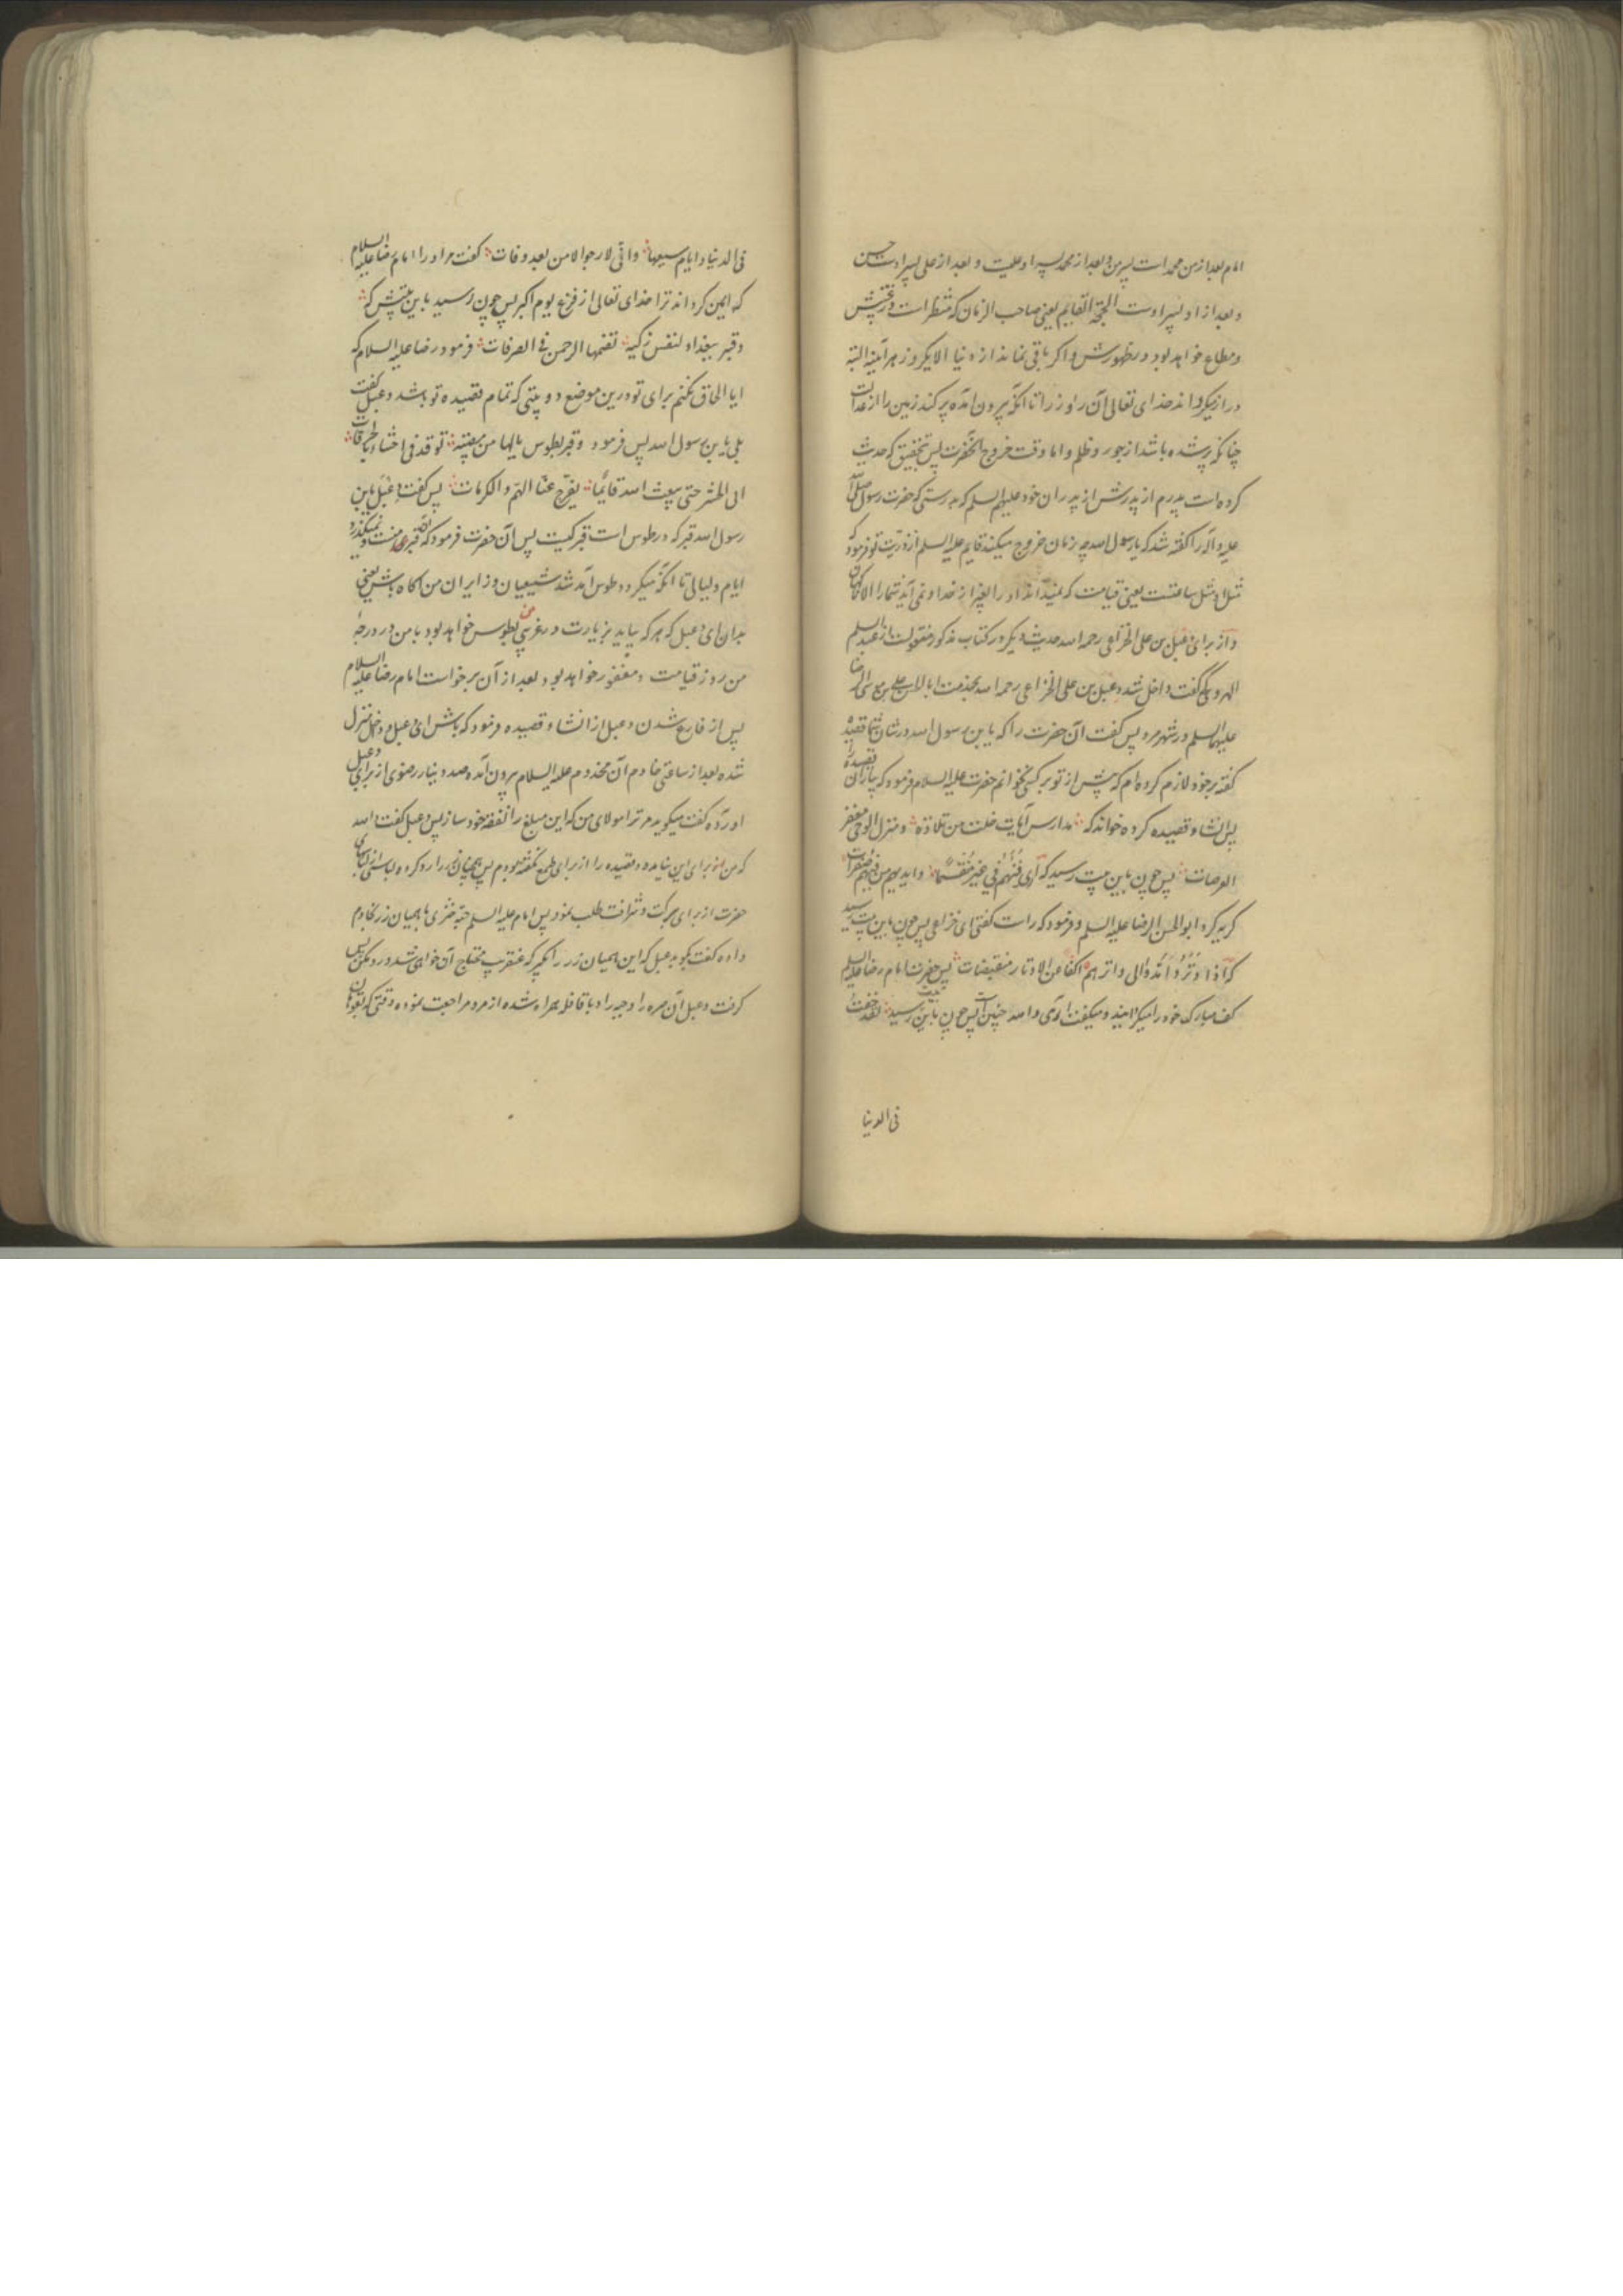 امام بعد از من محمد است پسر من و بعد از محمد پسر او علیست و بعد از علی پسر اوست حسن
و بعد از او پسر اوست الحجة القایم یعنی صاحب الزمان که منتظر است در غیبتش
و مطاع خواهد بود در ظهورش و اگر باقی نماند از دنیا الا یکروز هر آینه البته
دراز میکرداند خدای تعالی آن روز را تا آنکه بیرون آمده پر کند زمین را از عدالت
چنانکه پر شده باشد از جور و ظلم و اما وقت خروج آنحضرت پس بتحقیق که حدیث
کرده است پدرم از پدرش از پدران خود علیهم السلم که بدرستی که حضرت رسول صلی الله
علیه و آله را گفته شد که یا رسول الله چه زمان خروج میکند قایم علیه السلم از ذریت تو فرمود که
مثل او مثل ساعتست یعنی قیامت که نمیداند او را بغیر از خدا و نمی آید شما را الا ناکهان
و از برای دعبل بن علی الخزاعی رحمه الله حدیث دیکر در کتاب مذکور منقولست از عبد السلم
الهروی که گفت داخل شد دعبل بن علی الخزاعی رحمه الله بخدمت ابا الحسن علی بن موسی الرضا
علیهما السلم در شهر مرو پس گفت آن حضرت را که یابن رسول الله در شان شما قصیدهٔ
گفته بر خود لازم کرده‌ام که پیش از تو بر کسی نخوانم حضرت علیه السلام فرمود که بیار آن قصیده را
پس انشاء قصیده کرده خواند که مدارس آیات خلت من تلاوة و منزل الوحی مقفر
العرصات پس چون باین بیت رسید که اری فیئهم فی غیرهم متقسما و ایدیهم من فیئهم صفرات
کریه کرد ابو الحسن الرضا علیه السلم و فرمود که راست گفتی ای خزاعی پس چون باین بیت رسید
که اذا وتروا مدوا الی واتریهم اکفا عن الاوتار منقبضات پس حضرت امام رضا علیه السلم
کف مبارک خود را میکردانید و میکفت آری والله چنین است پس چون باین بیت رسید لقد خفت
فی الدنیا
فی الدنیا و ایام سعیها و انی لارجوا الامن بعد وفات گفت مر او را امام رضا علیه السلام
که ایمن کرداند ترا خدای تعالی از فزع یوم اکبر پس چون رسید باین بیتش که
و قبر ببغداد لنفس زکیة تضمنها الرحمن فی الغرفات فرمود رضا علیه السلام که
ایا الحاق نکنم برای تو درین موضع دو بیتی که تمام قصیده تو باشد دعبل گفت
بلی یابن رسول الله پس فرمود و قبر بطوس یا لها من مصیبة توقد فی احشاء بالحرقات
الی الحشر حتی یبعث الله قائما یفرج عنا الهم و الکربات پس گفت دعبل یابن
رسول الله قبر که در طوس است قبر کیست پس آن حضرت فرمود که آن قبر منست و نمیکذرد
ایام و لیالی تا آنکه میکردد طوس آمد شد شیعیان و زایران من آکاه باش یعنی
بدان ای دعبل که هر که بیاید بزیارت من در غریبی بطوس خواهد بود با من در درجهٔ
من روز قیامت و مغفور خواهد بود بعد از آن برخواست امام رضا علیه السلام
پس از فارغ شدن دعبل از انشاء قصیده و فرمود که باش ای دعبل و داخل منزل
شده بعد از ساعتی خادم آن مخدوم علیه السلام بیرون آمده صد دینار رضوی از برای دعبل
آورده گفت میکوید مر ترا مولای من که این مبلغ را نفقه خود ساز پس دعبل گفت والله
که من از برای این نیامده و قصیده را از برای طمع نکفته بودم پس همیان زر را رد کرده لباسی از لباسهای
حضرت از برای برکت و شرافت طلب نمود پس امام علیه السلم جبه خزی با همیان زر بخادم
داده گفت بکو بدعبل که این همیان زر را بکیر که عنقریب محتاج آن خواهی شد و رد مکن پس
کرفت دعبل آن صره را و جبه را و با قافله همراه شده از مرو مراجعت نموده وقتی که بقوهان